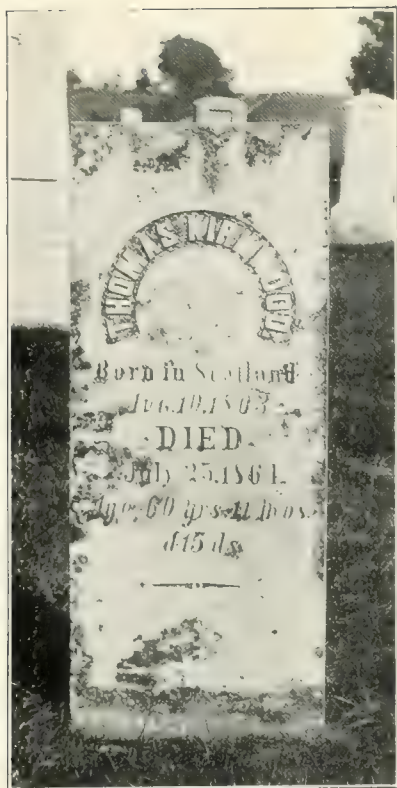 THOMAS KIRKWOOD
Born in Scotland
Aug. 10, 1803
DIED
July 25, 1864.
Age, 60 yrs. 11 mos.
&15 ds